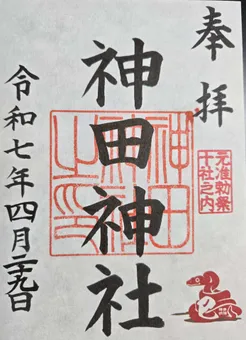 奉拝
元准勅祭
十社之内
神田神社
神田
神社
之印
令和七年四月二十九日